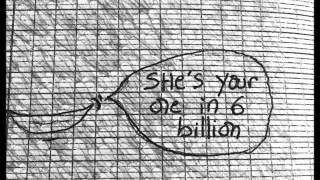 SHe's your
one in 6
billion